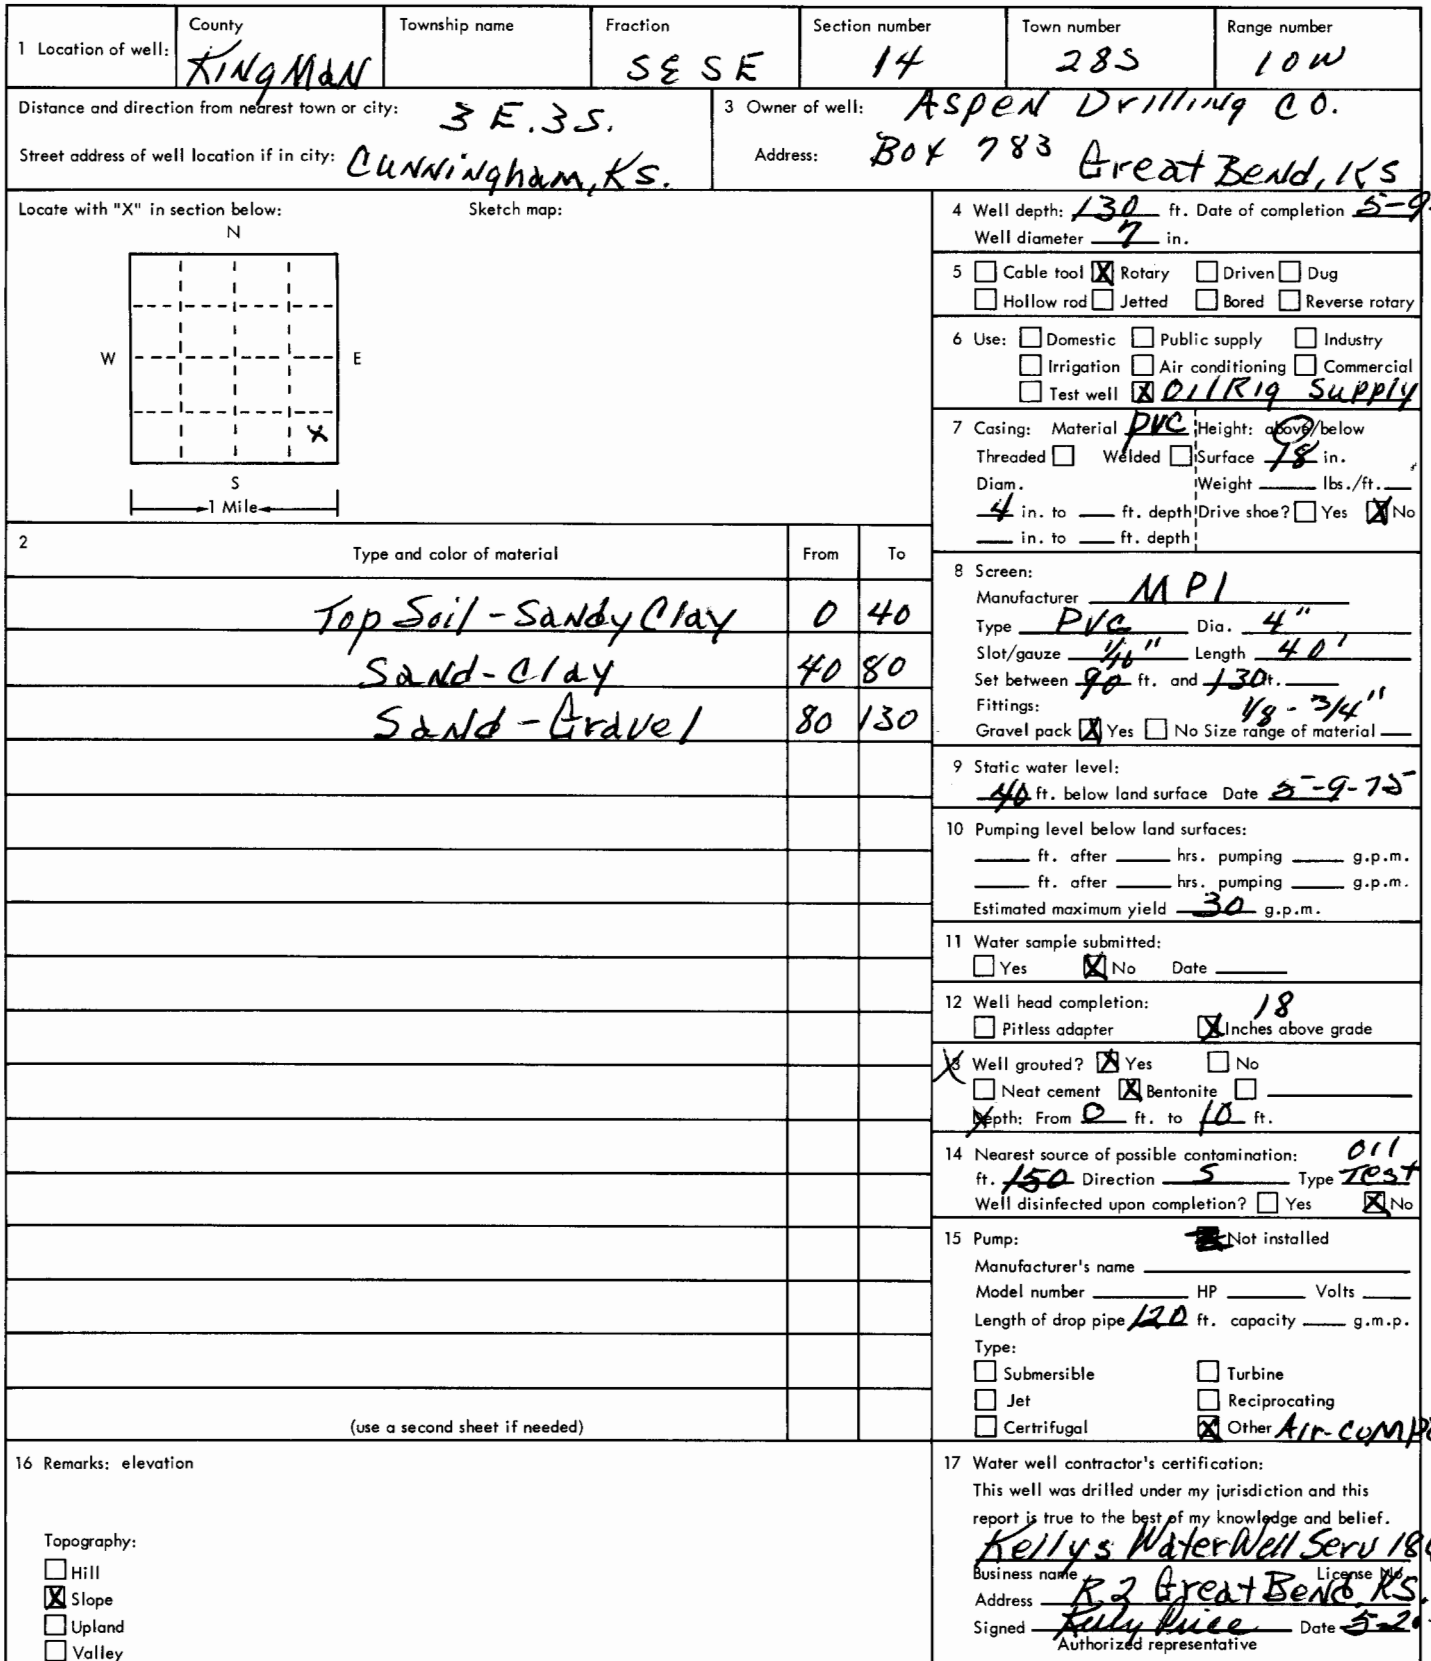 1 Location of well: County Township name Fraction Section number Town number Range number
KingMan SE SE 14 28S 10W
Distance and direction from nearest town or city: 3 E. 3 S.
Street address of well location if in city: Cunningham, Ks.
3 Owner of well: Aspen Drilling CO.
Address: Box 783 Great Bend, KS
Locate with "X" in section below: Sketch map:
N
W E
X
S
1 Mile
4 Well depth: 130 ft. Date of completion 5-9
Well diameter 7 in.
5 Cable tool X Rotary Driven Dug
Hollow rod Jetted Bored Reverse rotary
6 Use: Domestic Public supply Industry
Irrigation Air conditioning Commercial
Test well X Oil Rig Supply
7 Casing: Material PVC Height: above/below
Threaded Welded Surface 18 in.
Diam. Weight lbs./ft.
4 in. to ft. depth Drive shoe? Yes X No
in. to ft. depth
2 Type and color of material From To
Top Soil - Sandy Clay 0 40
Sand - Clay 40 80
Sand - Gravel 80 130
(use a second sheet if needed)
8 Screen:
Manufacturer MPI
Type PVC Dia. 4"
Slot/gauze 1/16" Length 40'
Set between 90 ft. and 130 ft.
Fittings: 1/8 - 3/4"
Gravel pack X Yes No Size range of material
9 Static water level:
40 ft. below land surface Date 5-9-75
10 Pumping level below land surfaces:
ft. after hrs. pumping g.p.m.
ft. after hrs. pumping g.p.m.
Estimated maximum yield 30 g.p.m.
11 Water sample submitted:
Yes X No Date
12 Well head completion: 18
Pitless adapter X Inches above grade
13 Well grouted? X Yes No
Neat cement X Bentonite
Depth: From 0 ft. to 10 ft.
14 Nearest source of possible contamination: Oil
ft. 150 Direction S Type Test
Well disinfected upon completion? Yes X No
15 Pump: Not installed
Manufacturer's name
Model number HP Volts
Length of drop pipe 120 ft. capacity g.m.p.
Type:
Submersible Turbine
Jet Reciprocating
Certrifugal X Other Air-comp
16 Remarks: elevation
Topography:
Hill
X Slope
Upland
Valley
17 Water well contractor's certification:
This well was drilled under my jurisdiction and this
report is true to the best of my knowledge and belief.
Kellys Water Well Serv 18
Business name License No.
Address R2 Great Bend, KS.
Signed Kelly Price Date 5-20
Authorized representative